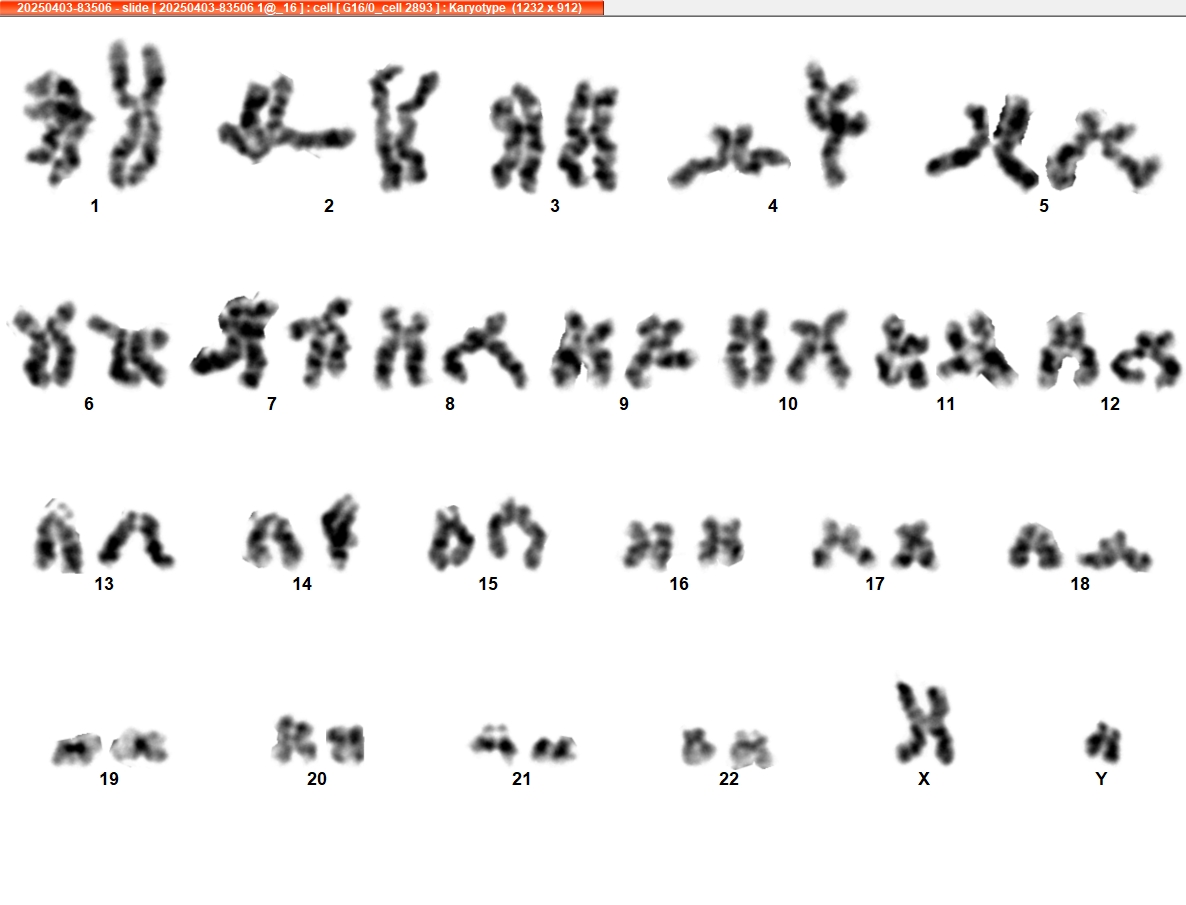 20250403-83506 - slide [ 20250403-83506 1@_16 ] : cell [ G16/0_cell 2893 ] : Karyotype (1232 x 912)
1 2 3 4 5
6 7 8 9 10 11 12
13 14 15 16 17 18
19 20 21 22 X Y